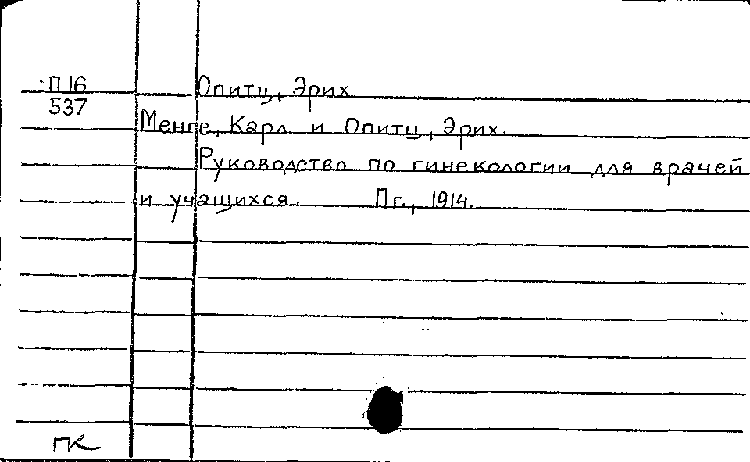 П16 Опитц, Эрих
537
Менге, Карл и Опитц, Эрих.
Руководство по гинекологии для врачей
и учащихся. Пг., 1914.
ГК